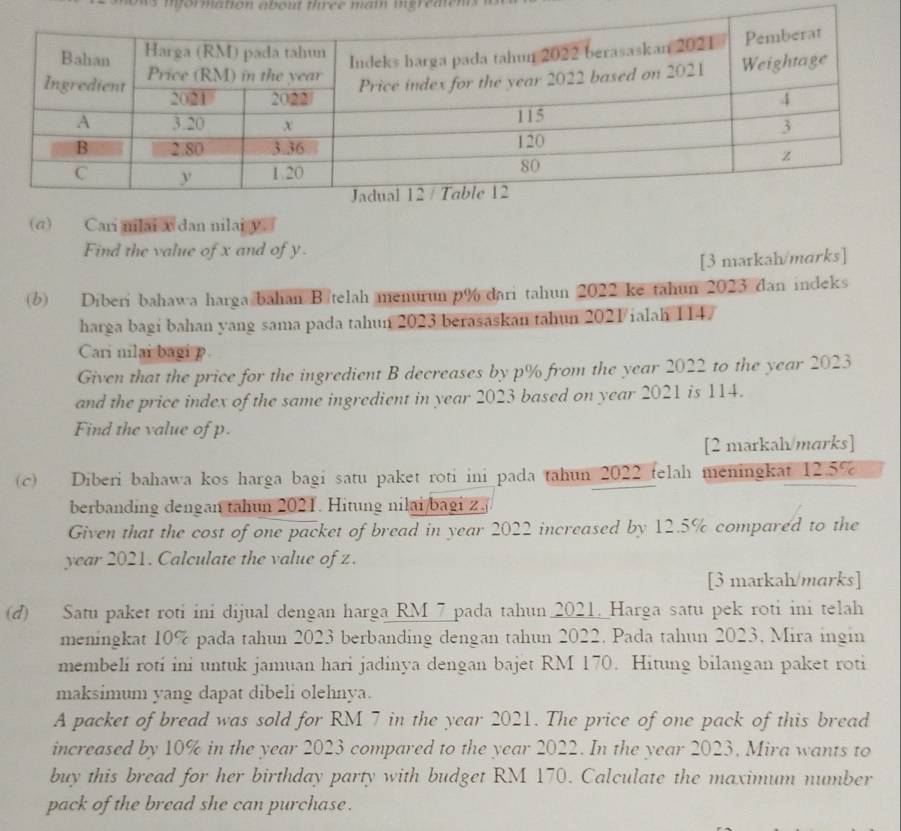 information about three main ingredients
Bahan Harga (RM) pada tahun Indeks harga pada tahun 2022 berasaskan 2021 Pemberat
Ingredient Price (RM) in the year Price index for the year 2022 based on 2021 Weightage
2021 2022
A 3.20 x 115 4
B 2.80 3.36 120 3
C y 1.20 80 z
Jadual 12 / Table 12
(a) Cari nilai x dan nilai y.
Find the value of x and of y.
[3 markah/marks]
(b) Diberi bahawa harga bahan B telah menurun p% dari tahun 2022 ke tahun 2023 dan indeks
harga bagi bahan yang sama pada tahun 2023 berasaskan tahun 2021 ialah 114.
Cari nilai bagi p.
Given that the price for the ingredient B decreases by p% from the year 2022 to the year 2023
and the price index of the same ingredient in year 2023 based on year 2021 is 114.
Find the value of p.
[2 markah/marks]
(c) Diberi bahawa kos harga bagi satu paket roti ini pada tahun 2022 telah meningkat 12.5%
berbanding dengan tahun 2021. Hitung nilai bagi z.
Given that the cost of one packet of bread in year 2022 increased by 12.5% compared to the
year 2021. Calculate the value of z.
[3 markah/marks]
(d) Satu paket roti ini dijual dengan harga RM 7 pada tahun 2021. Harga satu pek roti ini telah
meningkat 10% pada tahun 2023 berbanding dengan tahun 2022. Pada tahun 2023, Mira ingin
membeli roti ini untuk jamuan hari jadinya dengan bajet RM 170. Hitung bilangan paket roti
maksimum yang dapat dibeli olehnya.
A packet of bread was sold for RM 7 in the year 2021. The price of one pack of this bread
increased by 10% in the year 2023 compared to the year 2022. In the year 2023, Mira wants to
buy this bread for her birthday party with budget RM 170. Calculate the maximum number
pack of the bread she can purchase.